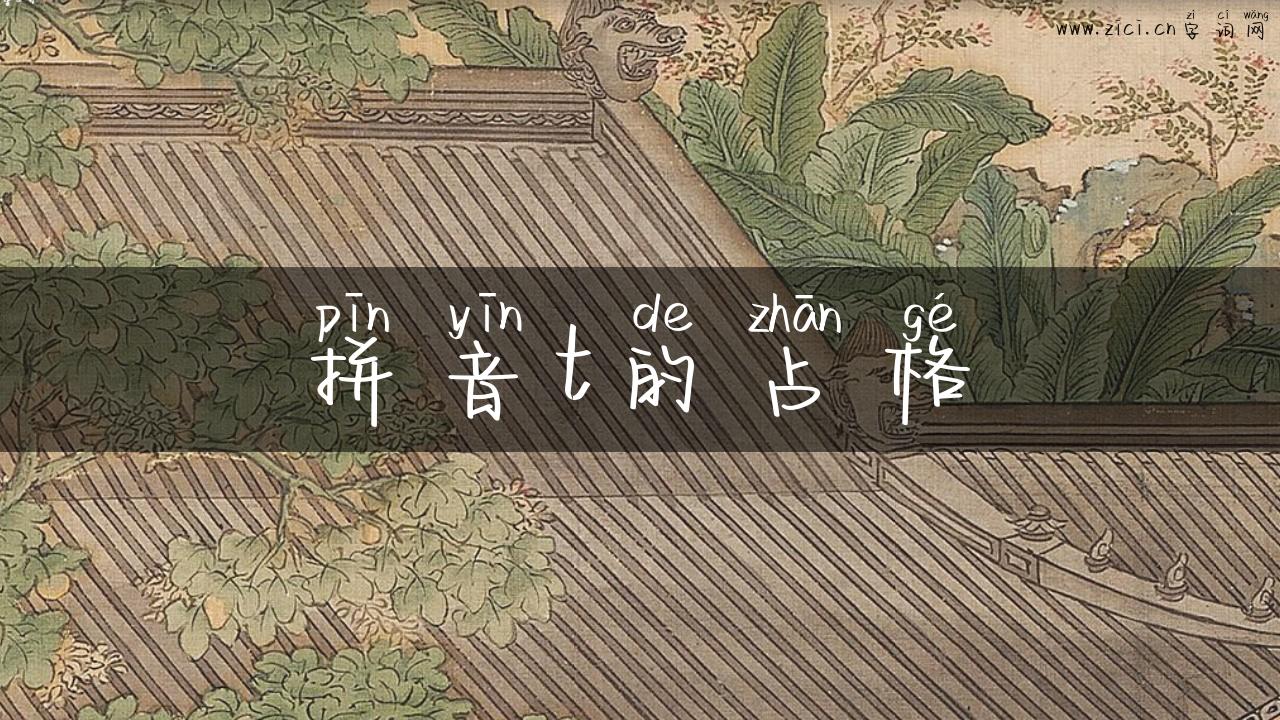 zì cí wǎng
www.zici.cn 字词网
pīn yīn de zhān gé
拼音t的占格